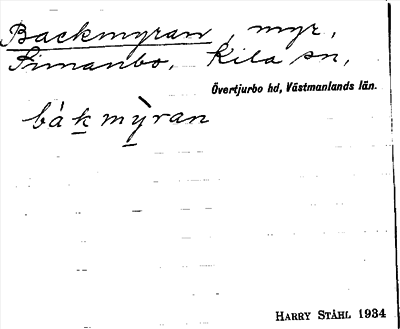 Backmyran, myr,
Simanbo, Kila sn,
Övertjurbo hd, Västmanlands län.
bákmỳran
HARRY STÅHL 1934